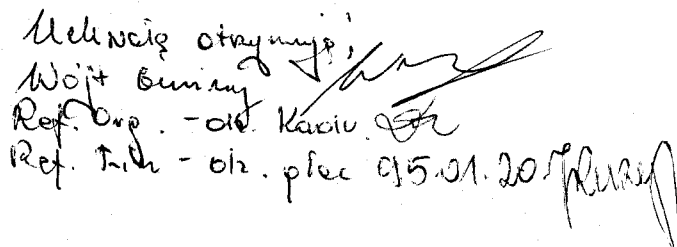 Uchwałę otrzymują:
Wójt Gminy
Ref. Org. - ds. Kadr
Ref. Fin - ds. płac 95.01.20